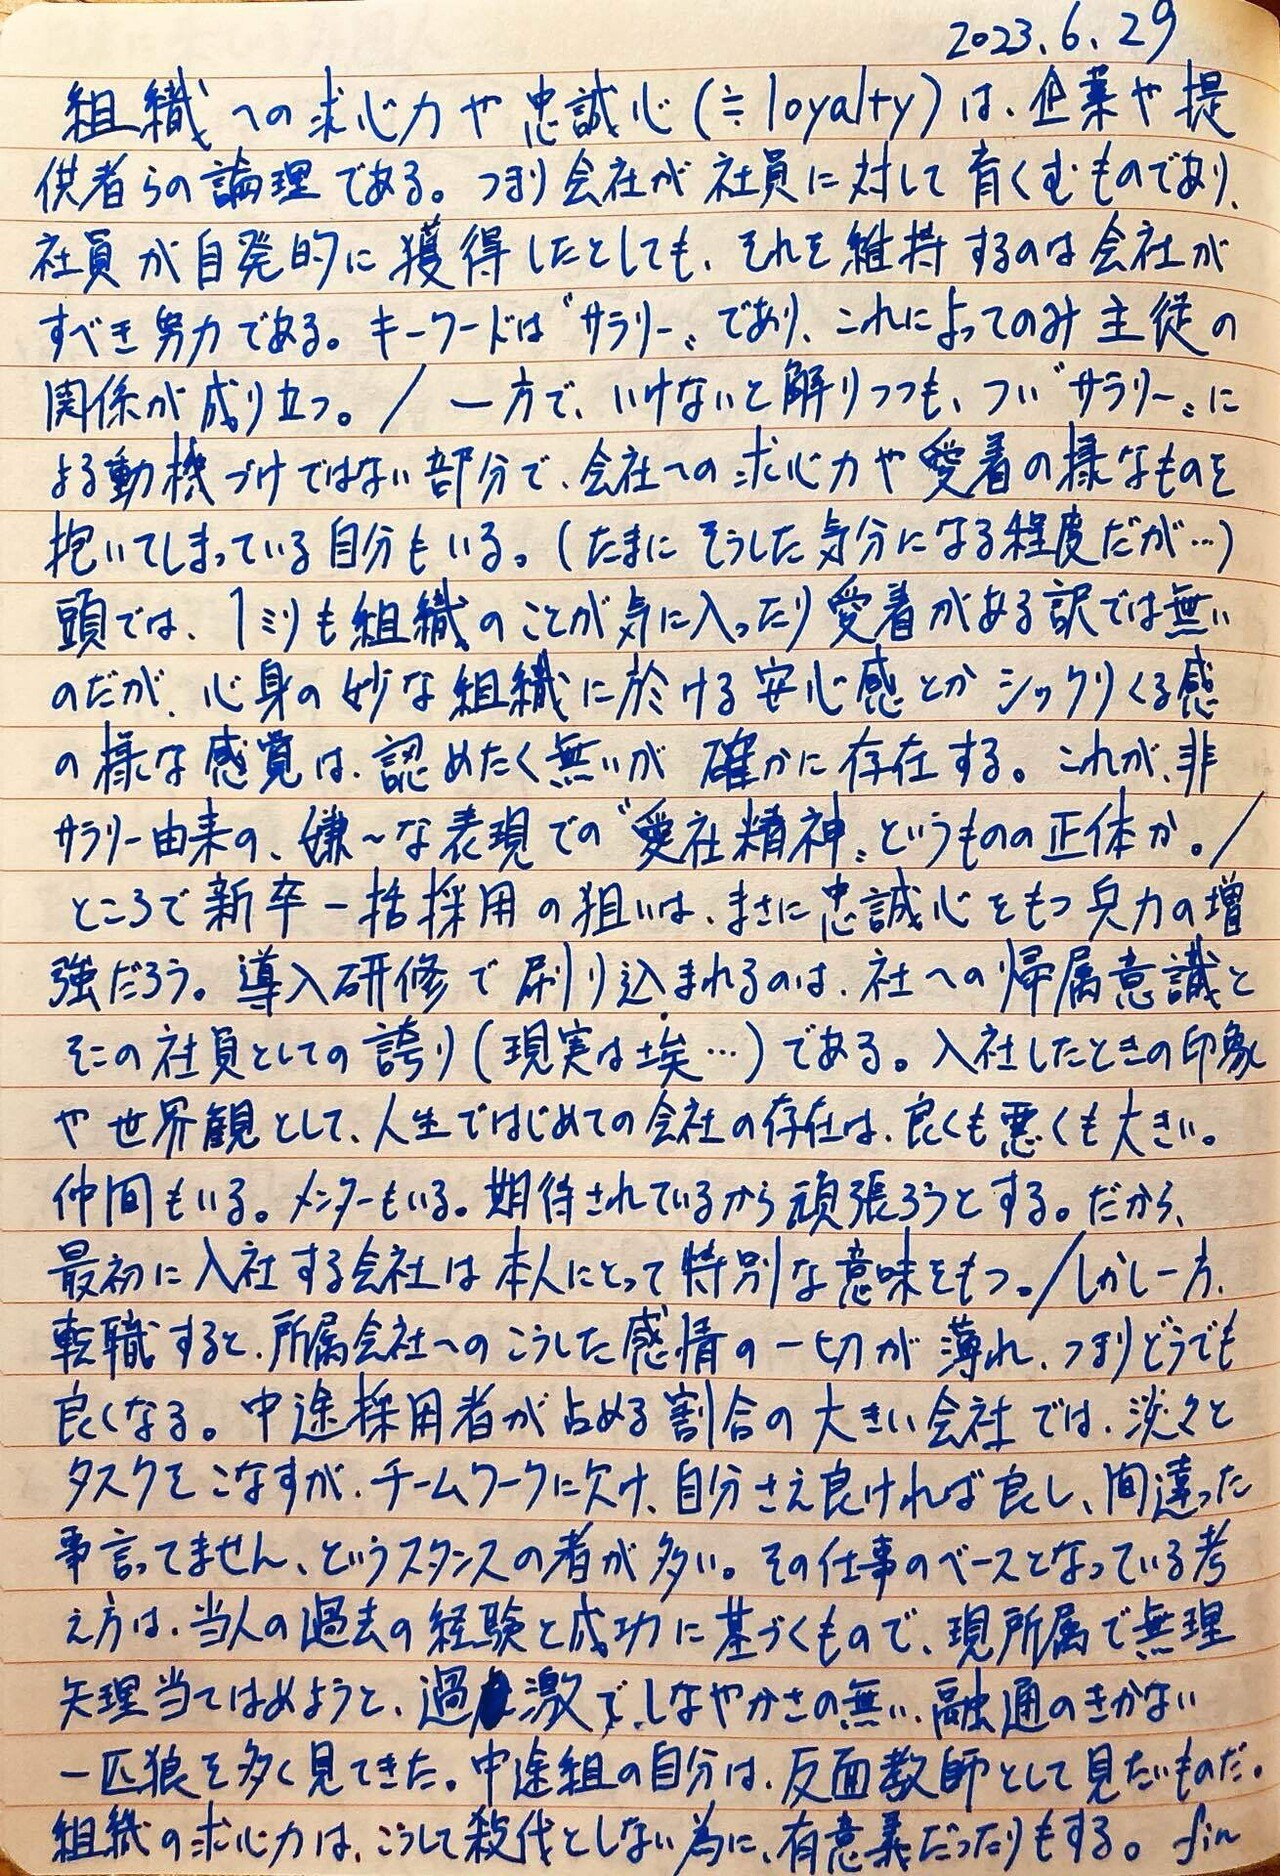 2023.6.29
組織への求心力や忠誠心(≒loyalty)は、企業や提
供者らの論理である。つまり会社が社員に対して育くむものであり、
社員が自発的に獲得したとしても、それを維持するのは会社が
すべき努力である。キーワードは〝サラリー〟であり、これによってのみ主従の
関係が成り立つ。/一方で、いけないと解りつつも、つい〝サラリー〟に
よる動機づけではない部分で、会社への求心力や愛着の様なものを
抱いてしまっている自分もいる。(たまにそうした気分になる程度だが…)
頭では、1ミリも組織のことが気に入ったり愛着がある訳では無い
のだが、心身の妙な組織に於ける安心感とかシックリくる感
の様な感覚は、認めたく無いが確かに存在する。これが、非
サラリー由来の、嫌〜な表現での〝愛社精神〟というものの正体か。/
ところで新卒一括採用の狙いは、まさに忠誠心をもつ兵力の増
強だろう。導入研修で刷り込まれるのは、社への帰属意識と
そこの社員としての誇り(現実は埃…)である。入社したときの印象
や世界観として、人生ではじめての会社の存在は、良くも悪くも大きい。
仲間もいる。メンターもいる。期待されているから頑張ろうとする。だから、
最初に入社する会社は本人にとって特別な意味をもつ。/しかし一方、
転職すると、所属会社へのこうした感情の一切が薄れ、つまりどうでも
良くなる。中途採用者が占める割合の大きい会社では、淡々と
タスクをこなすが、チームワークに欠け、自分さえ良ければ良し、間違った
事言ってません、というスタンスの者が多い。その仕事のベースとなっている考
え方は、当人の過去の経験と成功に基づくもので、現所属で無理
矢理当てはめようと、過激で、しなやかさの無い、融通のきかない
一匹狼を多く見てきた。中途組の自分は、反面教師として見たいものだ。
組織の求心力は、こうして殺伐としない為に、有意義だったりもする。fin